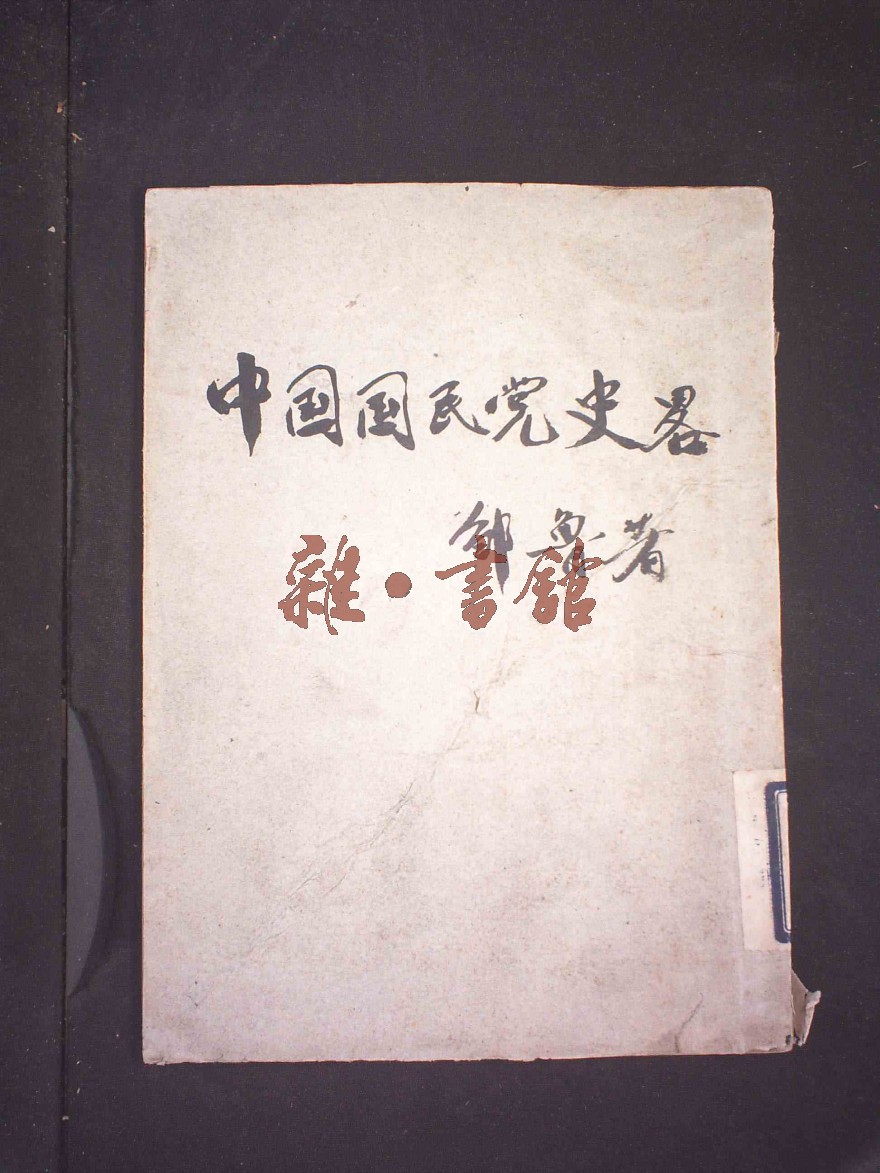 中国国民党史畧
邹鲁著
雜·書館